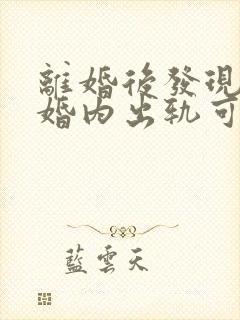 離婚後發現
婚内出軌可
藍雲天